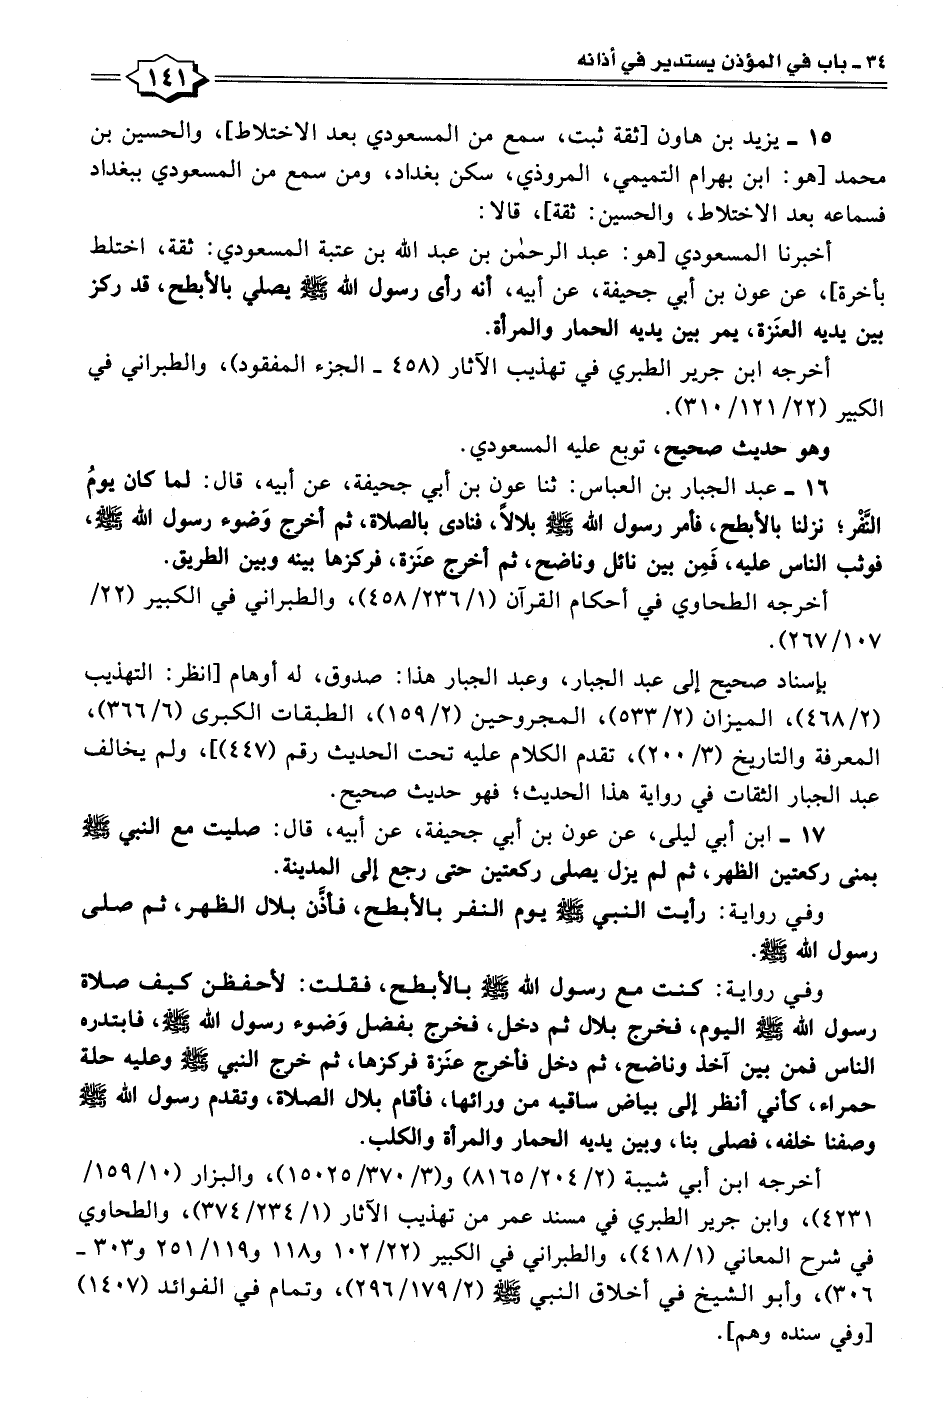 ٣٤ - باب في المؤذن يستدير في أذانه
١٤١
١٥ - يزيد بن هاون [ثقة ثبت، سمع من المسعودي بعد الاختلاط]، والحسين بن
محمد [هو: ابن بهرام التميمي، المروذي، سكن بغداد، ومن سمع من المسعودي ببغداد
فسماعه بعد الاختلاط، والحسين: ثقة]، قالا:
أخبرنا المسعودي [هو: عبد الرحمٰن بن عبد الله بن عتبة المسعودي: ثقة، اختلط
بأخرة]، عن عون بن أبي جحيفة، عن أبيه، أنه رأى رسول الله ﷺ يصلي بالأبطح، قد ركز
بين يديه العنَزة، يمر بين يديه الحمار والمرأة.
أخرجه ابن جرير الطبري في تهذيب الآثار (٤٥٨ - الجزء المفقود)، والطبراني في
الكبير (٢٢/ ١٢١/ ٣١٠).
وهو حديث صحيح، توبع عليه المسعودي.
١٦ - عبد الجبار بن العباس: ثنا عون بن أبي جحيفة، عن أبيه، قال: لما كان يومُ
النَّفْر؛ نزلنا بالأبطح، فأمر رسول الله ﷺ بلالاً، فنادى بالصلاة، ثم أخرج وَضوء رسول الله ﷺ،
فوثب الناس عليه، فَمِن بين نائل وناضح، ثم أخرج عنَزة، فركزها بينه وبين الطريق.
أخرجه الطحاوي في أحكام القرآن (١/ ٢٣٦/ ٤٥٨)، والطبراني في الكبير (٢٢/
١٠٧/ ٢٦٧).
بإسناد صحيح إلى عبد الجبار، وعبد الجبار هذا: صدوق، له أوهام [انظر: التهذيب
(٢/ ٤٦٨)، الميزان (٢/ ٥٣٣)، المجروحين (٢/ ١٥٩)، الطبقات الكبرى (٦/ ٣٦٦)،
المعرفة والتاريخ (٣/ ٢٠٠)، تقدم الكلام عليه تحت الحديث رقم (٤٤٧)]، ولم يخالف
عبد الجبار الثقات في رواية هذا الحديث؛ فهو حديث صحيح.
١٧ - ابن أبي ليلى، عن عون بن أبي جحيفة، عن أبيه، قال: صليت مع النبي ﷺ
بمنى ركعتين الظهر، ثم لم يزل يصلى ركعتين حتى رجع إلى المدينة.
وفي رواية: رأيت النبي ﷺ يوم النفر بالأبطح، فأذَّن بلال الظهر، ثم صلى
رسول الله ﷺ.
وفي رواية: كنت مع رسول الله ﷺ بالأبطح، فقلت: لأحفظن كيف صلاة
رسول الله ﷺ اليوم، فخرج بلال ثم دخل، فخرج بفضل وَضوء رسول الله ﷺ، فابتدره
الناس فمن بين آخذ وناضح، ثم دخل فأخرج عنَزة فركزها، ثم خرج النبي ﷺ وعليه حلة
حمراء، كأني أنظر إلى بياض ساقيه من ورائها، فأقام بلال الصلاة، وتقدم رسول الله ﷺ
وصفنا خلفه، فصلى بنا، وبين يديه الحمار والمرأة والكلب.
أخرجه ابن أبي شيبة (٢/ ٢٠٤/ ٨١٦٥) و(٣/ ٣٧٠/ ١٥٠٢٥)، والبزار (١٠/ ١٥٩/
٤٢٣١)، وابن جرير الطبري في مسند عمر من تهذيب الآثار (١/ ٢٣٤/ ٣٧٤)، والطحاوي
في شرح المعاني (١/ ٤١٨)، والطبراني في الكبير (٢٢/ ١٠٢ و١١٨ و١١٩/ ٢٥١ و٣٠٣ -
٣٠٦)، وأبو الشيخ في أخلاق النبي ﷺ (٢/ ١٧٩/ ٢٩٦)، وتمام في الفوائد (١٤٠٧)
[وفي سنده وهم].